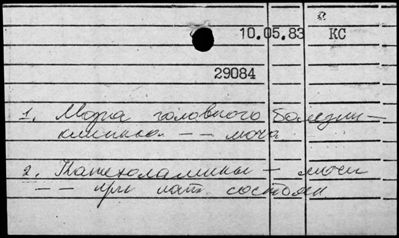 а
10.05.83 КС
29084
1. Моча головного болезни –
клиника. –– моча
2. Катехоламины – мочи
–– при пат. состоян